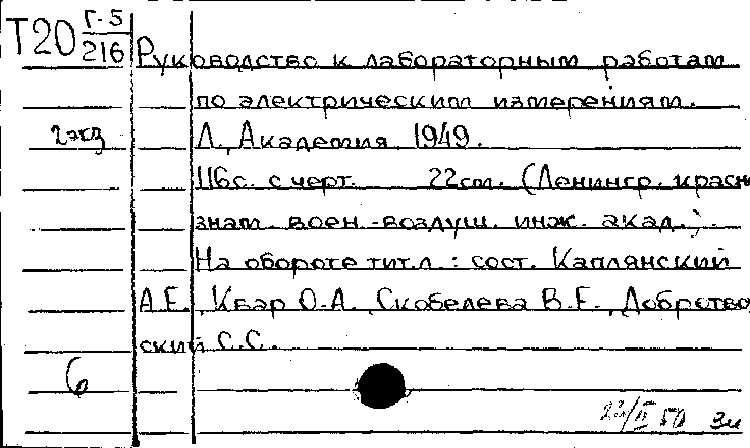 Т20 Г-5/216
Руководство к лабораторным работам
по электрическим измерениям.
2экз Л., Академия, 1949.
116с. с черт. 22см. (Ленингр. красно
знам. воен.-воздуш. инж. акад.).
На обороте тит.л.: сост. Каплянский
А.Е., Квар О.А., Скобелева В.Е., Добротво
ский С.С.
6
50 Зи